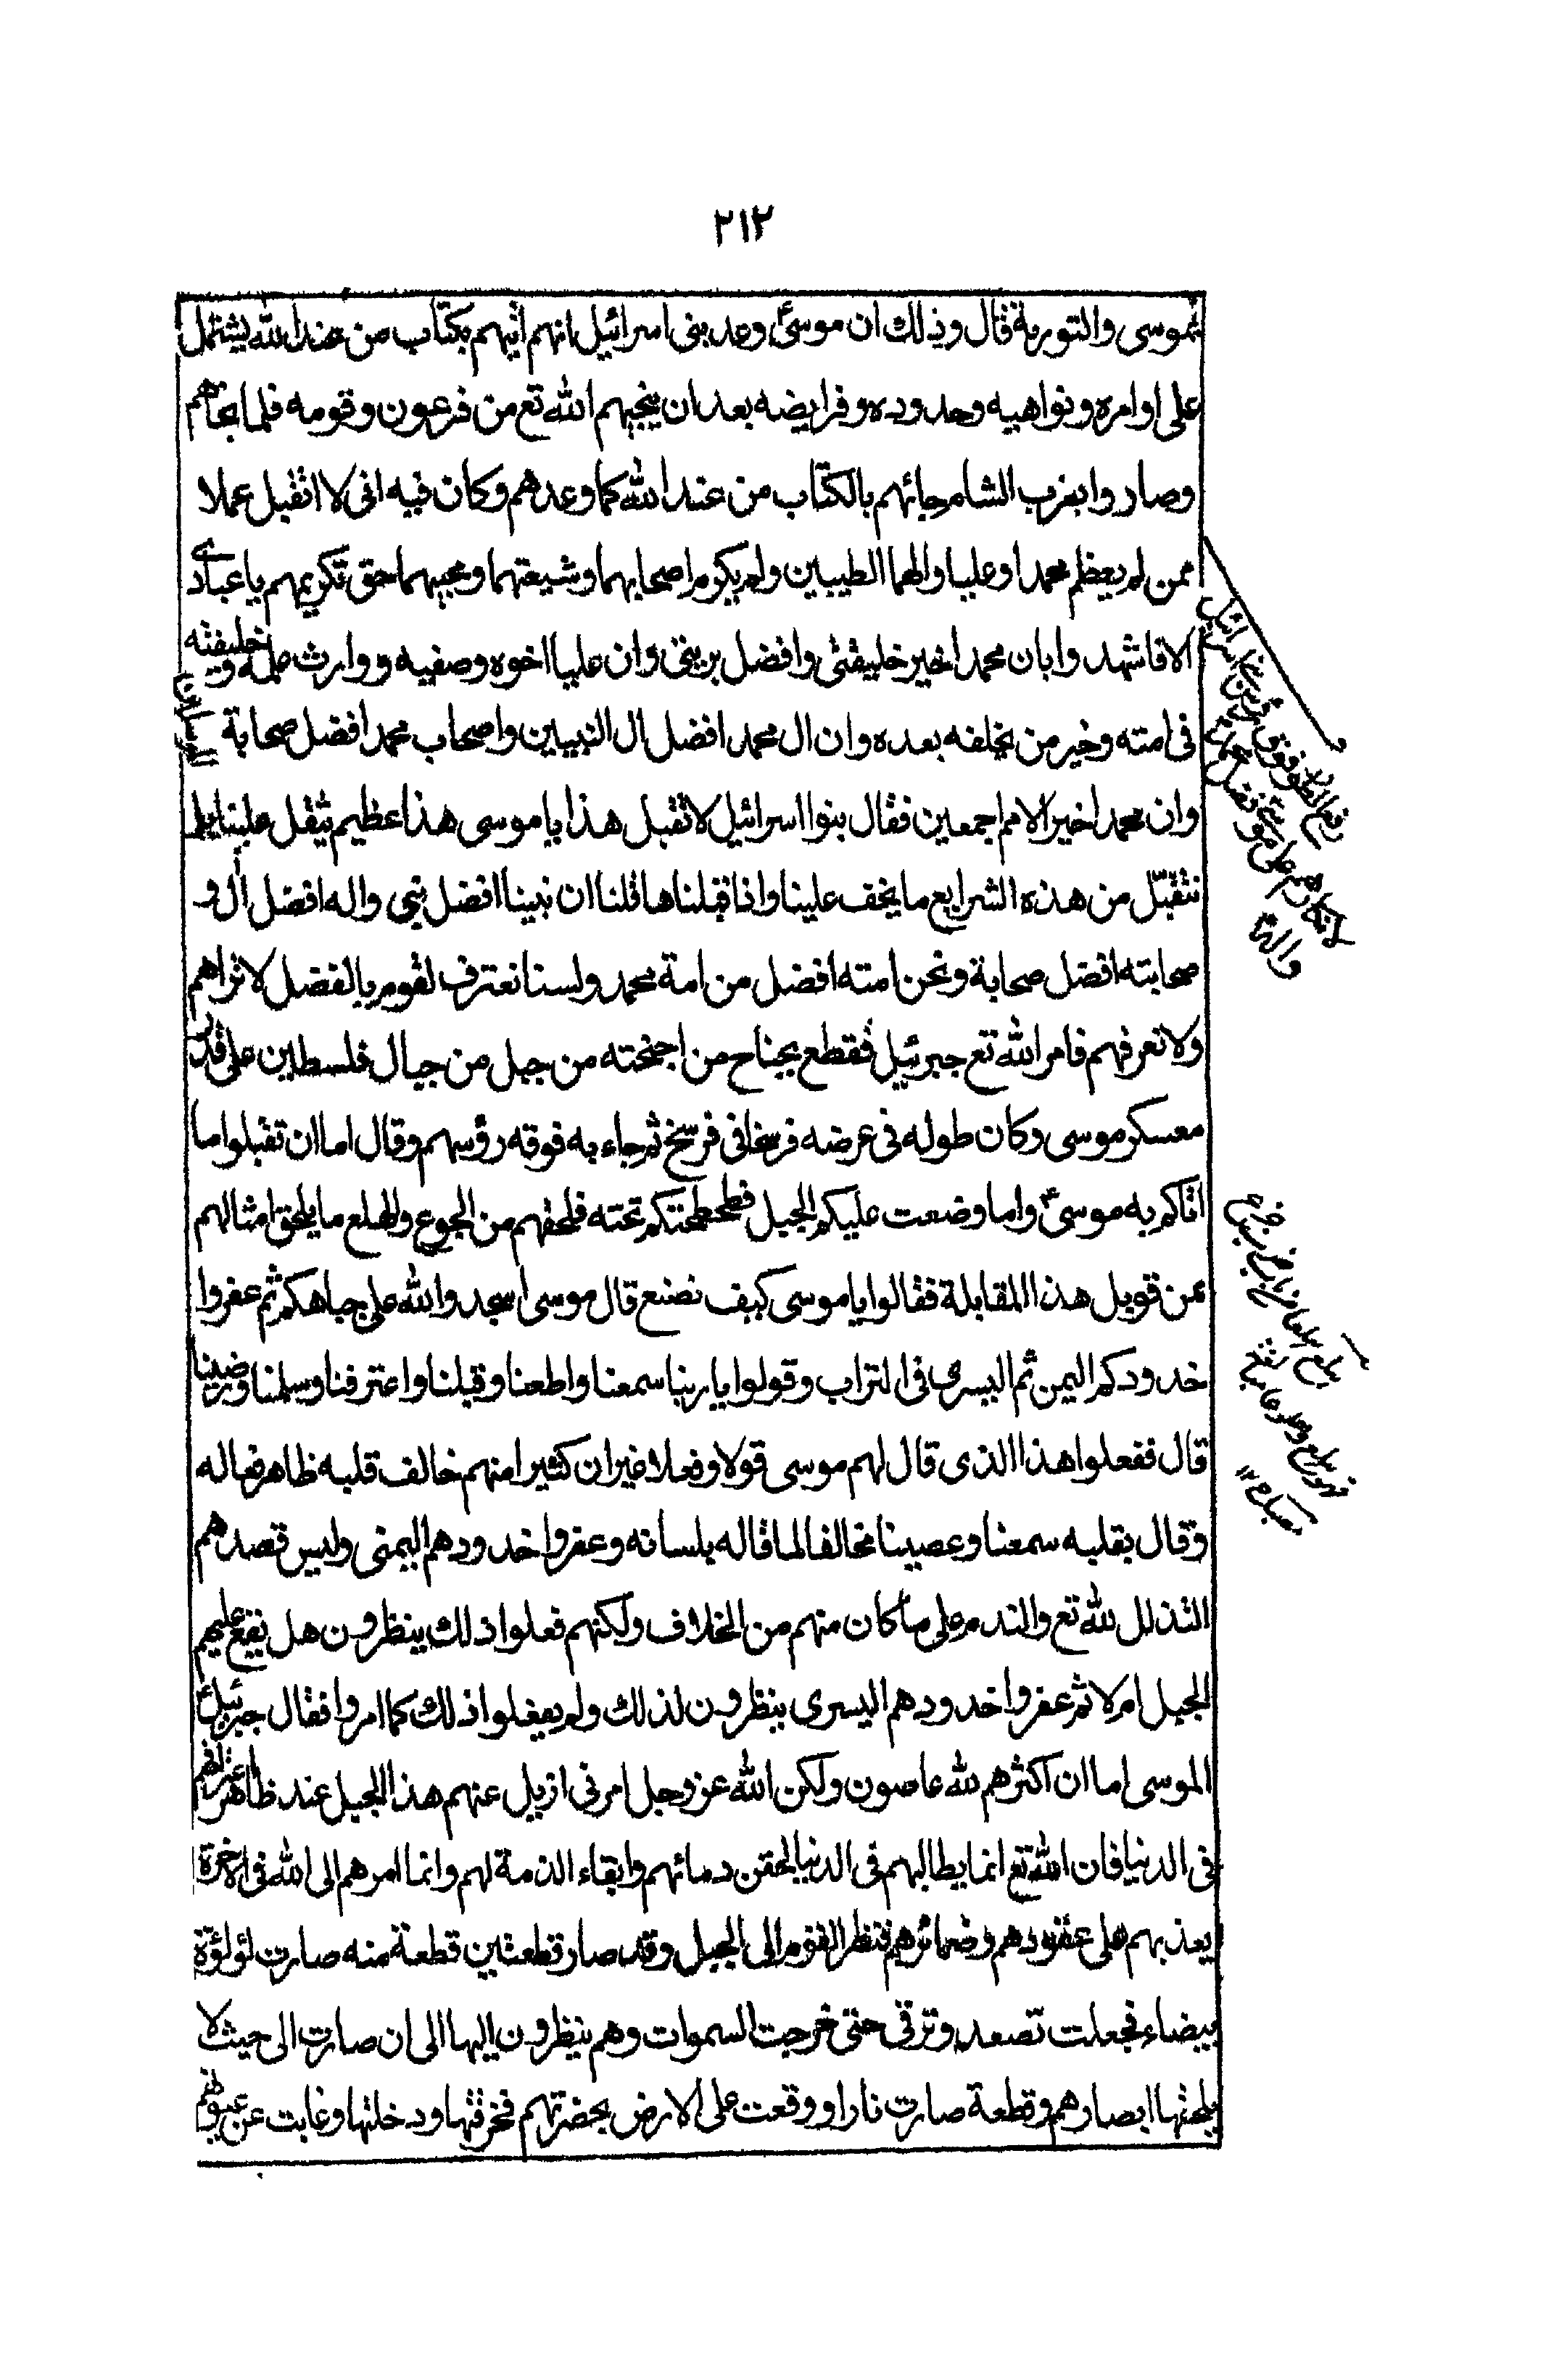 ٢١٢
بموسى والتورية قال وذلك ان موسىٰ وعد بنى اسرائيل انهم اتيهم بكتاب من عند الله يشتمل
على اوامره ونواهيه وحدوده وفرايضه بعد ان ينجيهم الله تع من فرعون وقومه فلما نجاهم
وصاروا بقرب الشام جائهم بالكتاب من عند الله كما وعدهم وكان فيه انى لا اتقبل عملا
ممن لم يعظم محمدا وعليا والهما الطيبين ولم يكرم اصحابهما وشيعتهما ومحبيهما حق تكريمهم يا عبادى
الا فاشهدوا بان محمدا خير خليقتى وافضل بريتى وان عليا اخوه وصفيه و وارث علمه وخليفته
فى امته وخير من يخلفه بعده وان ال محمد افضل ال النبيين واصحاب محمد افضل صحابة
وان محمدا خير الامم اجمعين فقال بنوا اسرائيل لا نقبل هذا يا موسى هذا عظيم يثقل علينا بل
نتقبّل من هذه الشرايع ما يخف علينا واذا قبلناها قلنا ان نبينا افضل نبى واله افضل ال و
صحابته افضل صحابة ونحن امته افضل من امة محمد ولسنا نعترف لقوم بالفضل لا نراهم
ولا نعرفهم فامر الله تع جبرئيل فقطع بجناح من اجنحته من جبل من جبال فلسطين على قدر
معسكر موسى وكان طوله فى عرضه فرسخا فى فرسخ ثم جاء به فوقه رؤسهم وقال اما ان تقبلوا ما
اتاكم به موسىٰ واما وضعت عليكم الجبل فطحطحتكم تحته فلحقهم من الجوع والهلع ما يلحق امثالهم
ممن قوبل هذا المقابلة فقالوا يا موسى كيف نصنع قال موسى اسجدوا لله على جباهكم ثم عفروا
خدودكم اليمن ثم اليسرى فى التراب وقولوا يا ربنا سمعنا واطعنا وقبلنا واعترفنا وسلمنا ورضينا
قال ففعلوا هذا الذى قال لهم موسى قولا وفعلا غير ان كثيرا منهم خالف قلبه ظاهر فعاله
وقال بقلبه سمعنا وعصينا مخالفا لما قاله بلسانه وعفروا خدودهم اليمنى وليس قصدهم
التذلل لله تع والندم على ما كان منهم من الخلاف ولكنهم فعلوا ذلك ينظرون هل يقع عليهم
الجبل ام لا ثم عفروا خدودهم اليسرى ينظرون لذلك ولم يفعلوا ذلك كما امروا فقال جبرئيل
لموسى اما ان اكثرهم لله عاصون ولكن الله عز وجل امرنى ازيل عنهم هذا الجبل عند ظاهر
فى الدنيا فان الله تع انما يطالبهم فى الدنيا لحقن دمائهم وابقاء الذمة لهم وانما امرهم الى الله فى الاخرة
يعذبهم على عقودهم وضمائرهم فنظر القوم الى الجبل وقد صار قطعتين قطعة منه صارت لؤلؤة
بيضاء فجعلت تصعد وترقى حتى خرجت السموات وهم ينظرون اليها الى ان صارت الى حيث لا
يلحقها ابصارهم وقطعة صارت نارا ووقعت على الارض بحضرتهم فخرقتها ودخلتها وغابت عن عيونهم